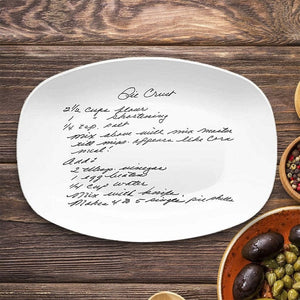 Pie Crust
2 1/2 cups flour
1 " shortening
1/4 cup salt
Mix above with mix master
till mix. appears like corn
meal!
Add:
2 tblsp vinegar
1 egg beaten
1/4 cup water
Mix with knife.
Makes 4 to 5 single pie shells